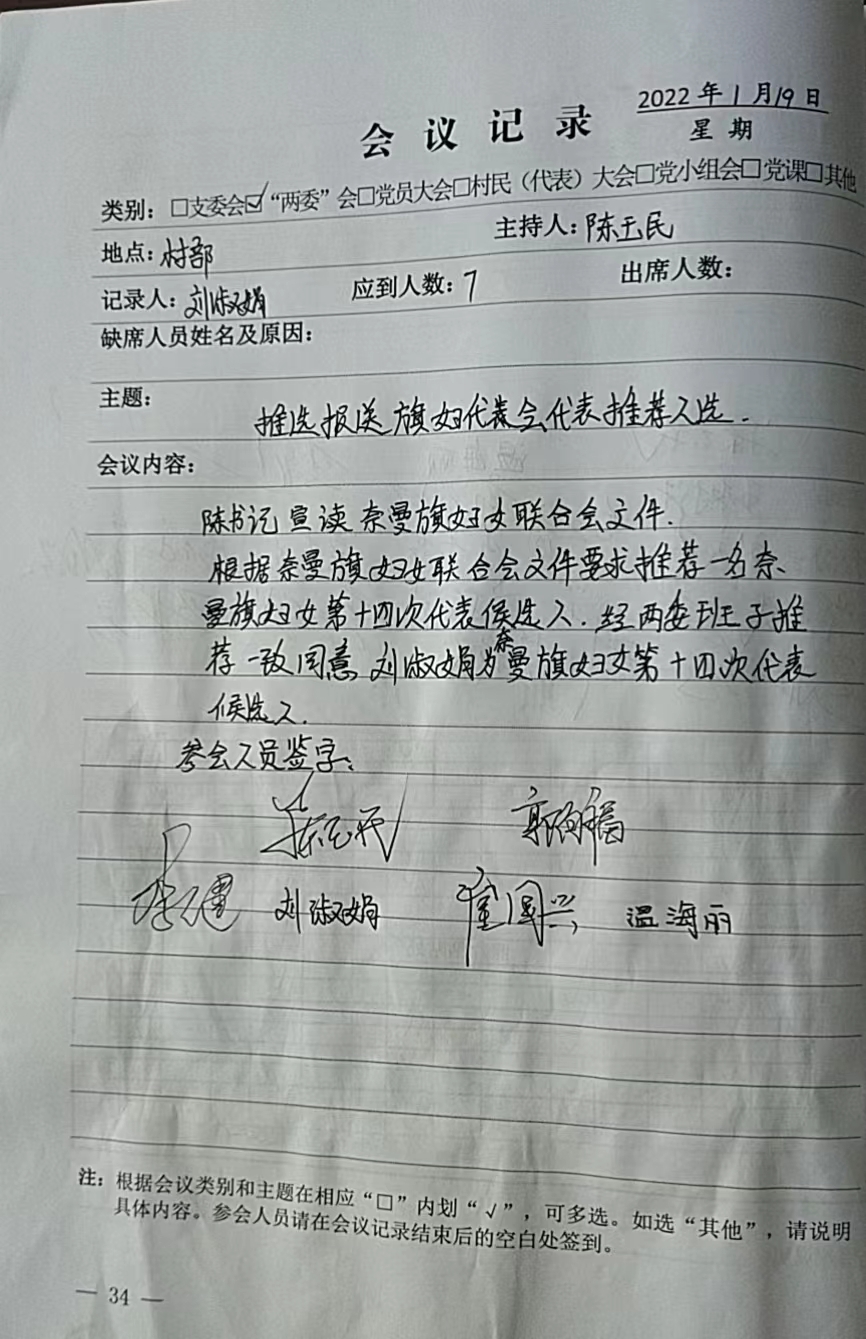 2022年1月19日
会议记录 星期
类别：□支委会☑“两委”会□党员大会□村民（代表）大会□党小组会□党课□其他
地点：村部 主持人：陈玉民
记录人：刘淑娟 应到人数：7 出席人数：
缺席人员姓名及原因：
主题：
推选报送旗妇代表会代表推荐人选.
会议内容：
陈书记宣读奈曼旗妇女联合会文件.
根据奈曼旗妇女联合会文件要求推荐一名奈
曼旗妇女第十四次代表候选人.经两委班子推
荐一致同意刘淑娟为奈曼旗妇女第十四次代表
候选人.
参会人员签字：
陈玉民
刘淑娟 温海丽
注：根据会议类别和主题在相应“□”内划“√”，可多选。如选“其他”，请说明
具体内容。参会人员请在会议记录结束后的空白处签到。
— 34 —